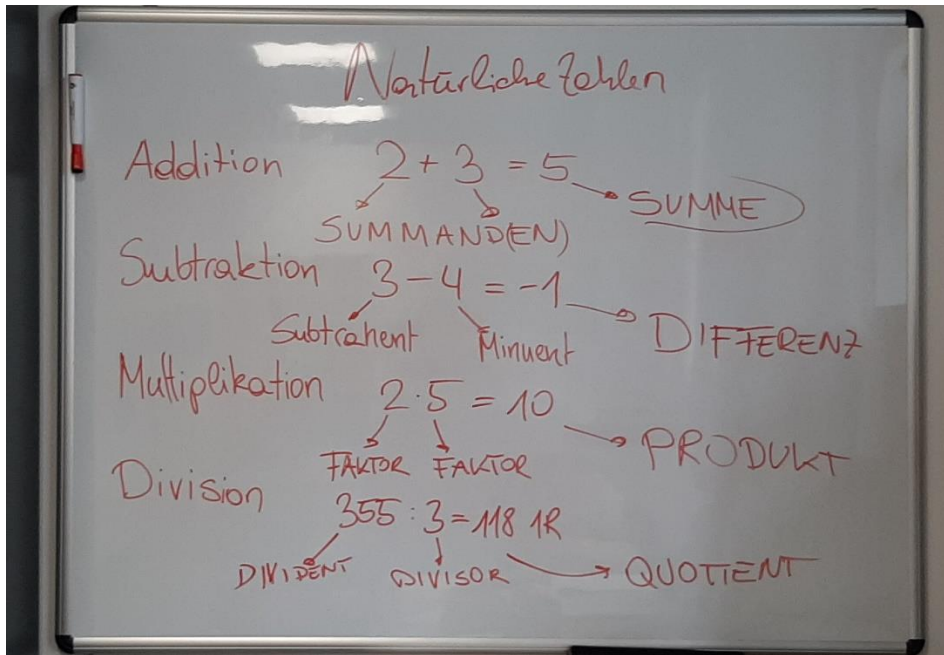 Natürliche Zahlen
Addition 2 + 3 = 5 SUMME
SUMMAND(EN)
Subtraktion 3 - 4 = -1 DIFFERENZ
Subtrahent Minuent
Multiplikation 2 · 5 = 10 PRODUKT
FAKTOR FAKTOR
Division 355 : 3 = 118 1R
DIVIDENT DIVISOR QUOTIENT